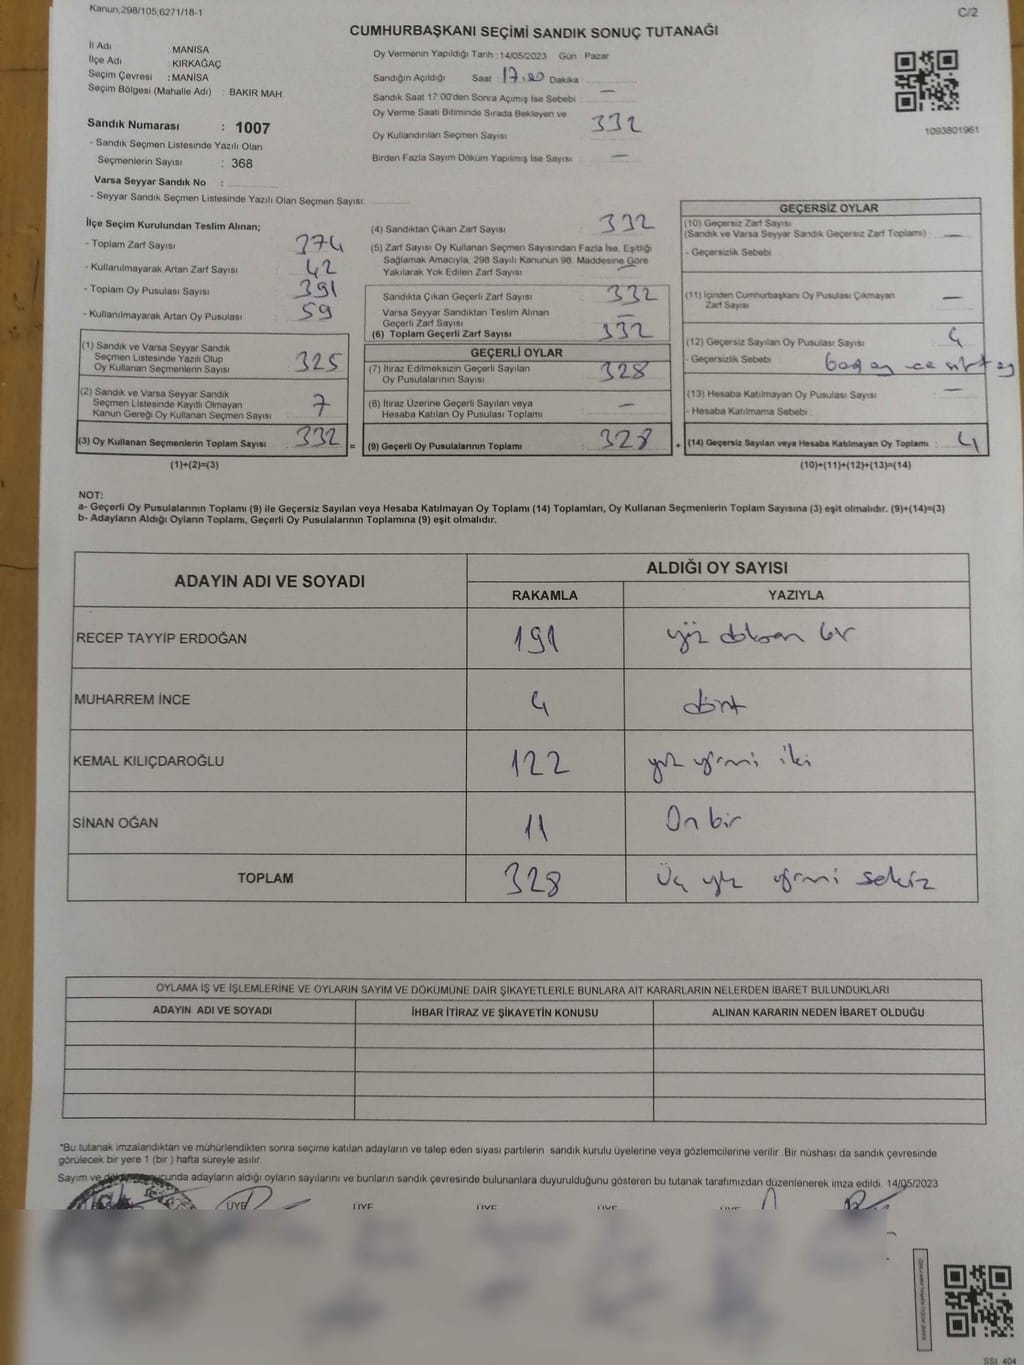 Kanun:298/105,6271/18-1
C/2
CUMHURBAŞKANI SEÇİMİ SANDIK SONUÇ TUTANAĞI
İl Adı : MANİSA
İlçe Adı : KIRKAĞAÇ
Seçim Çevresi : MANİSA
Seçim Bölgesi (Mahalle Adı) : BAKIR MAH.
Sandık Numarası : 1007
- Sandık Seçmen Listesinde Yazılı Olan
Seçmenlerin Sayısı : 368
Varsa Seyyar Sandık No :
- Seyyar Sandık Seçmen Listesinde Yazılı Olan Seçmen Sayısı:
Oy Vermenin Yapıldığı Tarih : 14/05/2023 Gün : Pazar
Sandığın Açıldığı Saat 17.00 Dakika
Sandık Saat 17:00'den Sonra Açımış İse Sebebi : —
Oy Verme Saati Bitiminde Sırada Bekleyen ve
Oy Kullandırılan Seçmen Sayısı 332
Birden Fazla Sayım Döküm Yapılmış İse Sayısı —
1093801961
İlçe Seçim Kurulundan Teslim Alınan;
- Toplam Zarf Sayısı : 374
- Kullanılmayarak Artan Zarf Sayısı : 42
- Toplam Oy Pusulası Sayısı : 391
- Kullanılmayarak Artan Oy Pusulası : 59
(1) Sandık ve Varsa Seyyar Sandık
Seçmen Listesinde Yazılı Olup
Oy Kullanan Seçmenlerin Sayısı : 325
(2) Sandık ve Varsa Seyyar Sandık
Seçmen Listesinde Kayıtlı Olmayan
Kanun Gereği Oy Kullanan Seçmen Sayısı : 7
(3) Oy Kullanan Seçmenlerin Toplam Sayısı : 332 =
(1)+(2)=(3)
(4) Sandıktan Çıkan Zarf Sayısı : 332
(5) Zarf Sayısı Oy Kullanan Seçmen Sayısından Fazla İse, Eşitliği
Sağlamak Amacıyla, 298 Sayılı Kanunun 98. Maddesine Göre
Yakılarak Yok Edilen Zarf Sayısı : —
Sandıkta Çıkan Geçerli Zarf Sayısı : 332
Varsa Seyyar Sandıktan Teslim Alınan
Geçerli Zarf Sayısı : —
(6) Toplam Geçerli Zarf Sayısı : 332
GEÇERLİ OYLAR
(7) İtiraz Edilmeksizin Geçerli Sayılan
Oy Pusulalarının Sayısı : 328
(8) İtiraz Üzerine Geçerli Sayılan veya
Hesaba Katılan Oy Pusulası Toplamı : —
(9) Geçerli Oy Pusulalarının Toplamı : 328 +
GEÇERSİZ OYLAR
(10) Geçersiz Zarf Sayısı
(Sandık ve Varsa Seyyar Sandık Geçersiz Zarf Toplamı) : —
- Geçersizlik Sebebi
(11) İçinden Cumhurbaşkanı Oy Pusulası Çıkmayan
Zarf Sayısı : —
(12) Geçersiz Sayılan Oy Pusulası Sayısı : 4
- Geçersizlik Sebebi :
(13) Hesaba Katılmayan Oy Pusulası Sayısı : —
- Hesaba Katılmama Sebebi :
(14) Geçersiz Sayılan veya Hesaba Katılmayan Oy Toplamı : 4
(10)+(11)+(12)+(13)=(14)
NOT:
a- Geçerli Oy Pusulalarının Toplamı (9) ile Geçersiz Sayılan veya Hesaba Katılmayan Oy Toplamı (14) Toplamları, Oy Kullanan Seçmenlerin Toplam Sayısına (3) eşit olmalıdır. (9)+(14)=(3)
b- Adayların Aldığı Oyların Toplamı, Geçerli Oy Pusulalarının Toplamına (9) eşit olmalıdır.
ADAYIN ADI VE SOYADI ALDIĞI OY SAYISI
RAKAMLA YAZIYLA
RECEP TAYYİP ERDOĞAN 191 yüz doksan bir
MUHARREM İNCE 4 dört
KEMAL KILIÇDAROĞLU 122 yüz yirmi iki
SİNAN OĞAN 11 On bir
TOPLAM 328 Üç yüz yirmi sekiz
OYLAMA İŞ VE İŞLEMLERİNE VE OYLARIN SAYIM VE DÖKÜMÜNE DAİR ŞİKAYETLERLE BUNLARA AİT KARARLARIN NELERDEN İBARET BULUNDUKLARI
ADAYIN ADI VE SOYADI İHBAR İTİRAZ VE ŞİKAYETİN KONUSU ALINAN KARARIN NEDEN İBARET OLDUĞU
*Bu tutanak imzalandıktan ve mühürlendikten sonra seçime katılan adayların ve talep eden siyasi partilerin sandık kurulu üyelerine veya gözlemcilerine verilir. Bir nüshası da sandık çevresinde
görülecek bir yere 1 (bir ) hafta süreyle asılır.
Sayım ve döküm sonucunda adayların aldığı oyların sayılarını ve bunların sandık çevresinde bulunanlara duyurulduğunu gösteren bu tutanak tarafımızdan düzenlenerek imza edildi. 14/05/2023
ÜYE ÜYE ÜYE ÜYE ÜYE
SSI_404